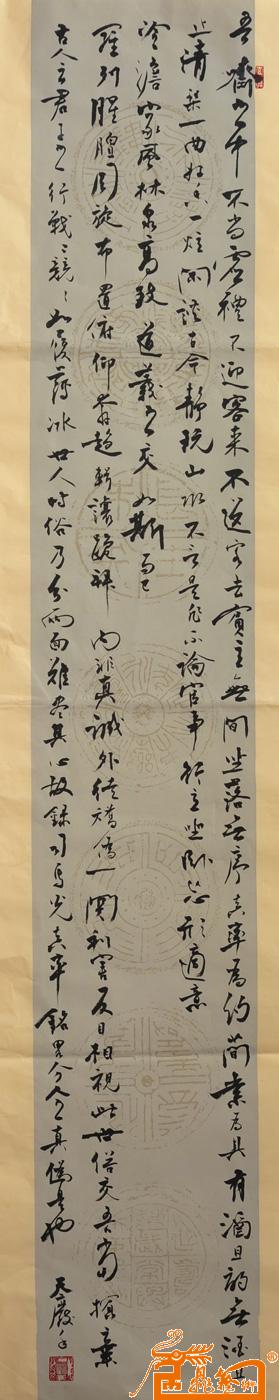 吾斋之中不尚虚礼不迎客来不送客去宾主无间坐落无序真率为约简素为具有酒且酌无酒且
止清琴一曲好香一炷闲谈古今静玩山水不言是非不论官事行立坐卧忘形适意
冷澹家风林泉高致道义之交如斯而已
罗列腥膻周旋布置俯仰奔趋揖让跪拜内非真诚外徒矫伪一关利害反目相视此世俗交吾当摈弃
古人云君子之行战战兢兢如履薄冰世人时俗乃分两面难尽其心故录司马光真率铭